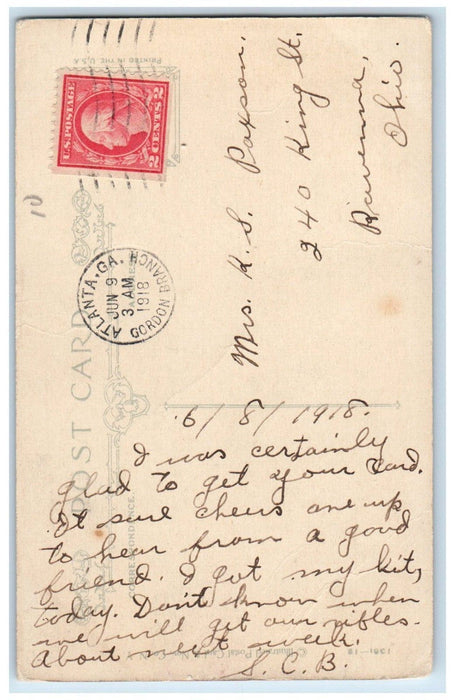 PRINTED IN THE U.S.A.
U.S. POSTAGE
2 CENTS 2
10
ATLANTA, GA.
JUN 9
3 AM
1918
GORDON BRANCH
POST CARD
CORRESPONDENCE
Mrs. H. S. Paxson.
240 King St.
Ravenna,
Ohio.
6/8/1918.
I was certainly
glad to get your card.
It sure cheers one up
to hear from a good
friend. I got my kit,
today. Don't know when
we will get our rifles.
About next week.
S. C. B.
© Illustrated Postal Card & Nov. Co.
1361-12